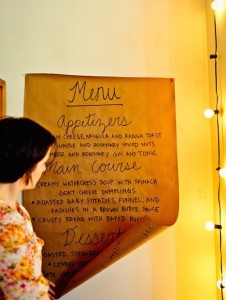 Menu
Appetizers
CHEESE, AND RADISH TOAST
AND ROSEMARY SPICED NUTS
AND ROSEMARY GIN AND TONIC
Main Course
CREAMY WATERCRESS SOUP WITH SPINACH
GOAT CHEESE DUMPLINGS
• ROASTED BABY POTATOES, FENNEL, AND
RADISHES IN A BROWN BUTTER SAUCE
• CRUSTY BREAD WITH
Dessert